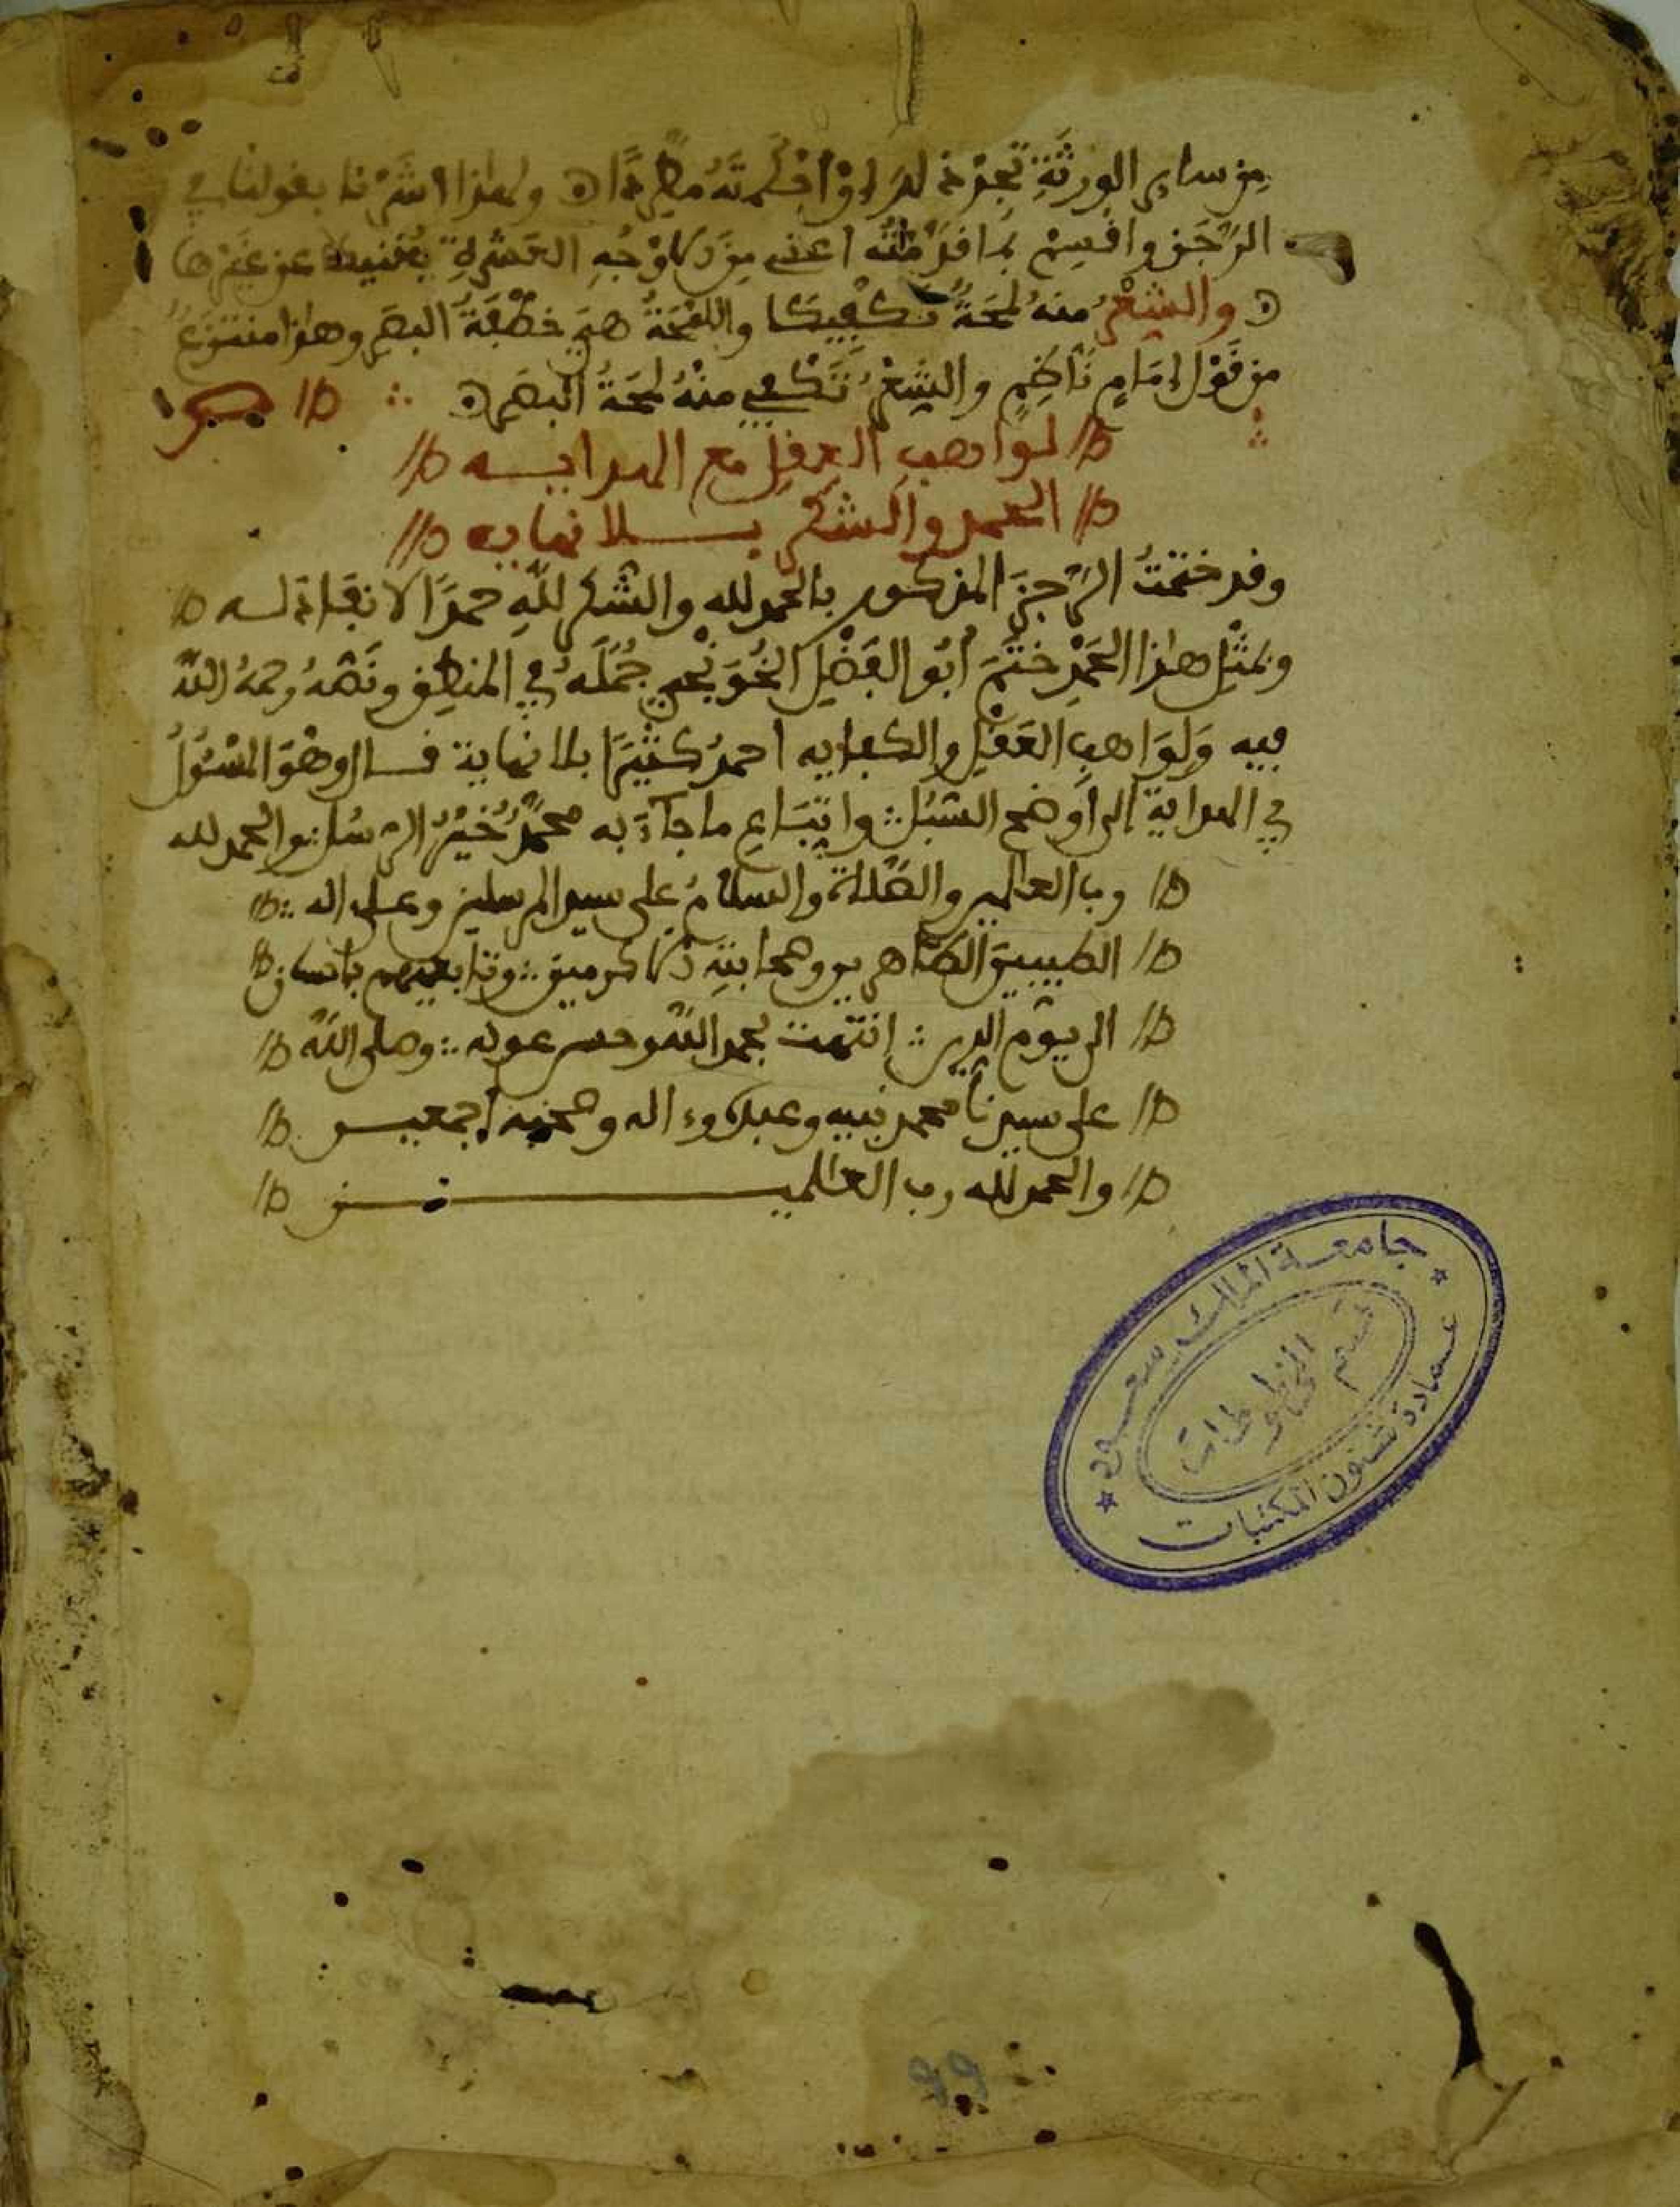 من ساير الورثة تجزه له ولهذا اشرنا بقولنا في
الرجز وافسم بما قدمته اعني من الاوجه العشرة يغنيك عن غيرها
والشعر منه لمحة تكفيكا واللمحة هي خطفة البصر وهذا منتزع
من قول إمام ناظم والشعر تكفي منه لمحة البصر
لواهب العقل مع الهدايه
الحمد والشكر بلا نهايه
وقد ختمت الرجز المذكور بالحمد لله والشكر لله حمدا لا نفاد له
وبمثل هذا الحمد ختم أبو الفضل الخونجي جمله في المنطق ونصه رحمه الله
فيه ولواهب العقل والكفايه احمد كثيرا بلا نهاية قال وهو المسئول
في الهداية إلى أوضح السبل واتباع ما جآء به محمد خير الرسل والحمد لله
رب العالمين والصلاة والسلام على سيد المرسلين وعلى اله
الطيبين الطاهرين وصحابته الاكرمين وتابعيهم باحسان
الى يوم الدين انتهت بحمد الله وحسن عونه وصلى الله
على سيدنا محمد نبيه وعبده وءاله وصحبه اجمعين
والحمد لله رب العالمين
جامعة الملك سعود
قسم المخطوطات
عمادة شئون المكتبات
99